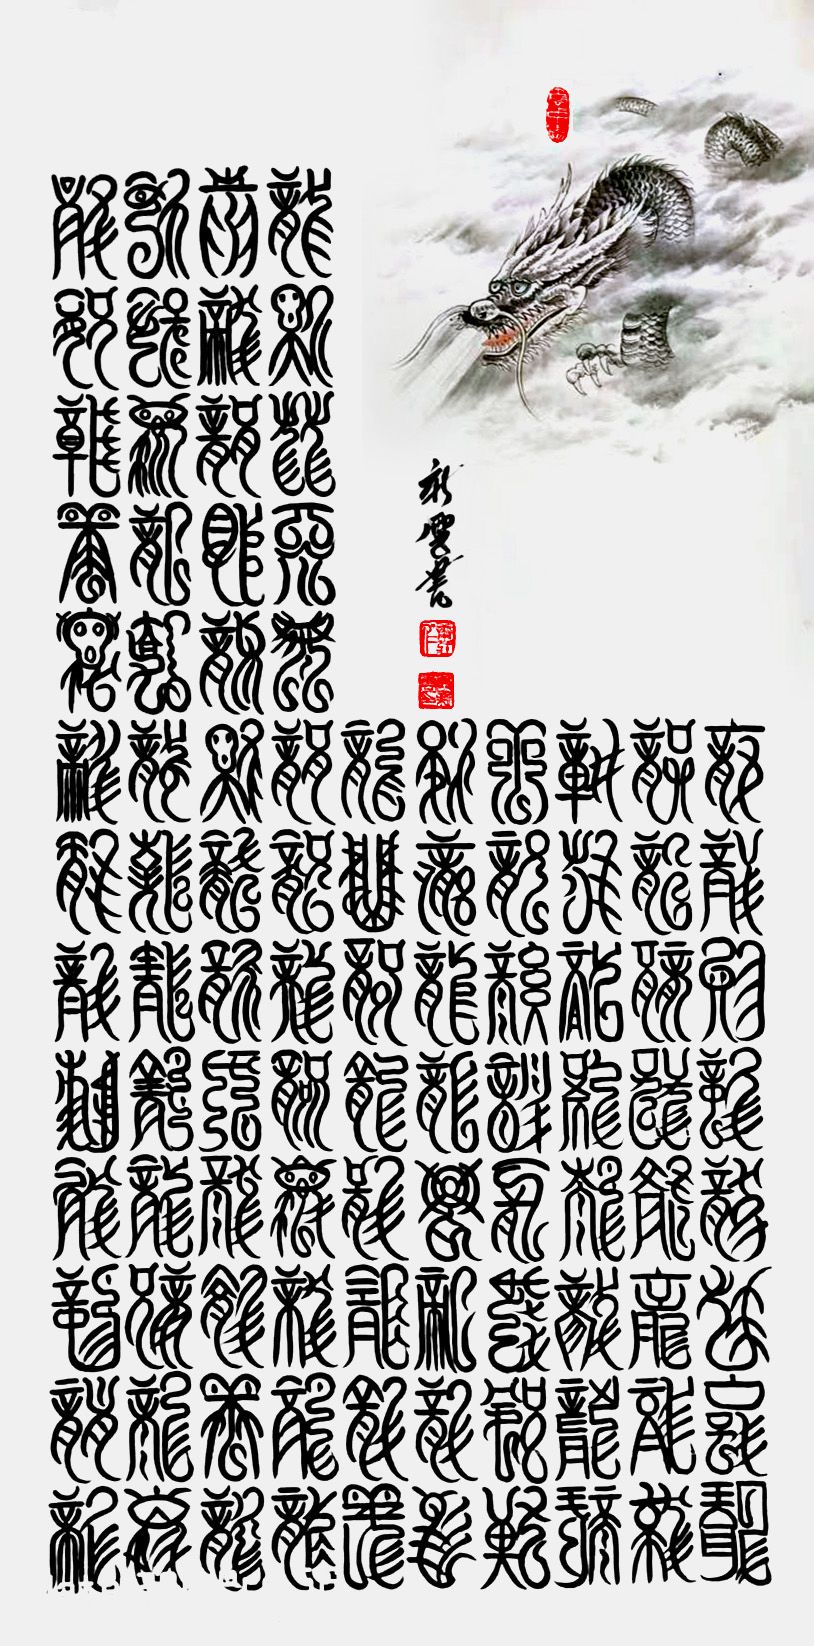 龍龍龍龍龍龍龍龍
龍龍龍龍龍龍龍龍
龍龍龍龍龍龍龍龍
龍龍龍龍龍龍龍龍
龍龍龍龍龍龍龍龍
龍龍龍龍龍龍龍龍
龍龍龍龍龍龍龍龍龍龍龍龍龍
龍龍龍龍龍龍龍龍龍龍龍龍龍
龍龍龍龍龍龍龍龍龍龍龍龍龍
龍龍龍龍龍龍龍龍龍龍龍龍龍
雲書